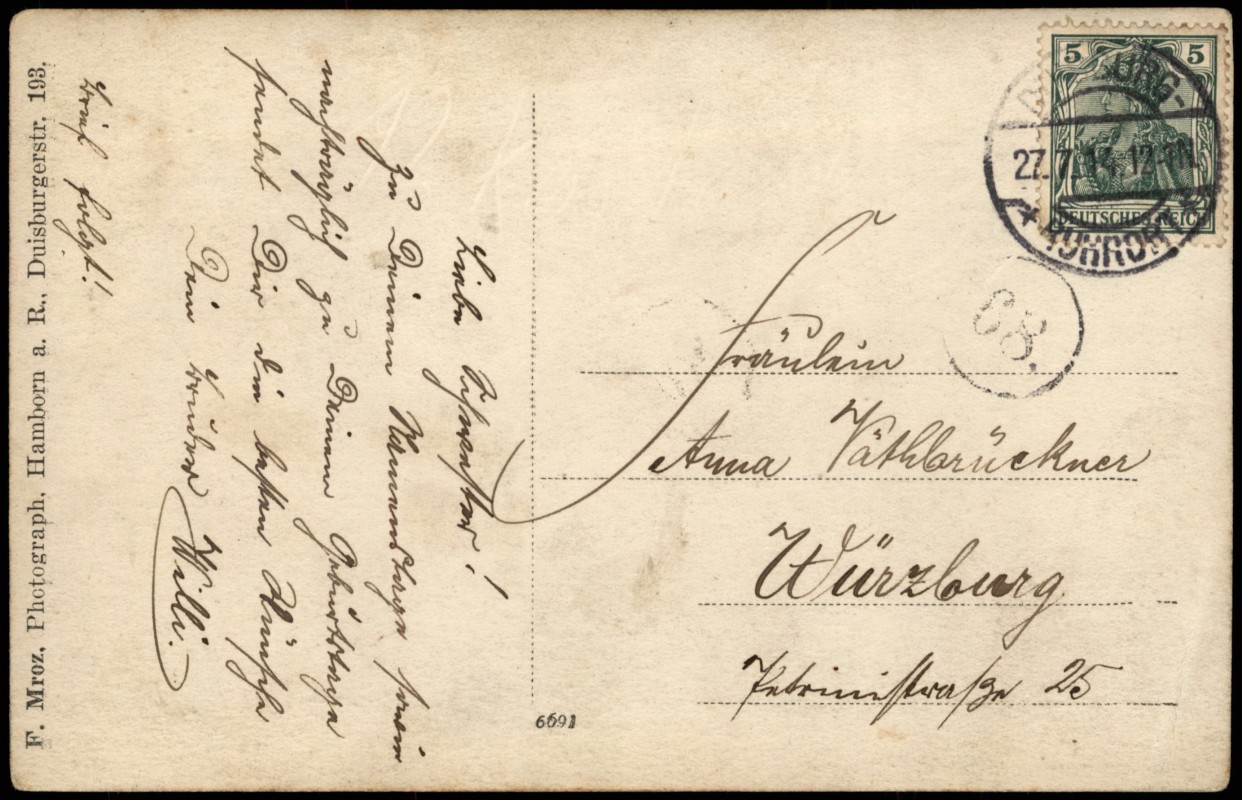 F. Mroz, Photograph, Hamborn a. R., Duisburgerstr. 193.
Liebe Schwester!
Zu Deinem Namenstage sowie
nachträglich zu Deinem Geburtstage
sendet Dir die besten Wünsche
Dein Bruder Willi.
Brief folgt!
5 5
DEUTSCHES REICH
27.7.
C8.
Fräulein
Anna Väthbrückner
Würzburg
Petrinistraße 25
6691